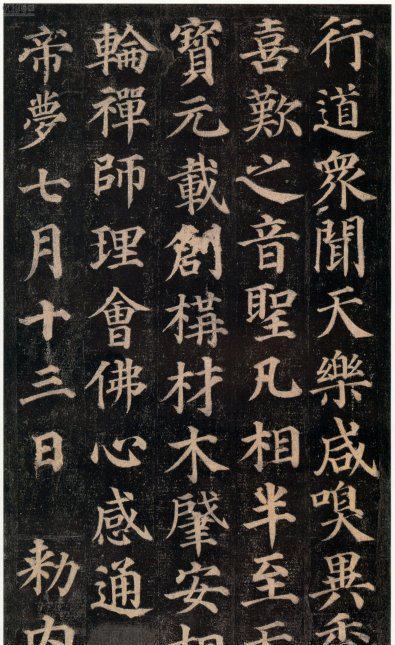 行道衆聞天樂咸嗅異香
喜歎之音聖凡相半至天
寶元載創構材木肇安相
輪禪師理會佛心感通
帝夢七月十三日 勅内